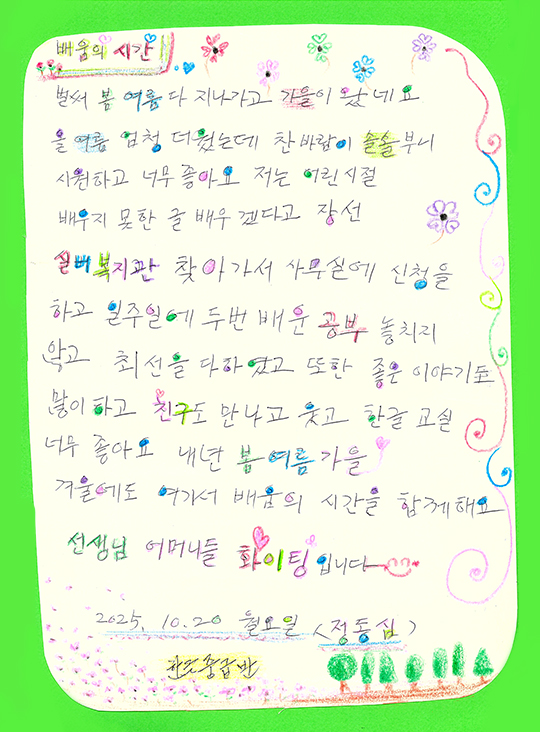 배움의 시간
벌써 봄 여름 다 지나가고 가을이 왔네요
올 여름 엄청 더웠는데 찬바람이 솔솔 부니
시원하고 너무 좋아요 저는 어린시절
배우지 못한 글 배우겠다고 장선
실버복지관 찾아가서 사무실에 신청을
하고 일주일에 두번 배운 공부 놓치지
않고 최선을 다하였고 또한 좋은 이야기도
많이 하고 친구도 만나고 웃고 한글 교실
너무 좋아요 내년 봄 여름 가을
겨울에도 여기서 배움의 시간을 함께해요
선생님 어머니들 화이팅 입니다
2025. 10. 20 월요일 (정동심)
중급반